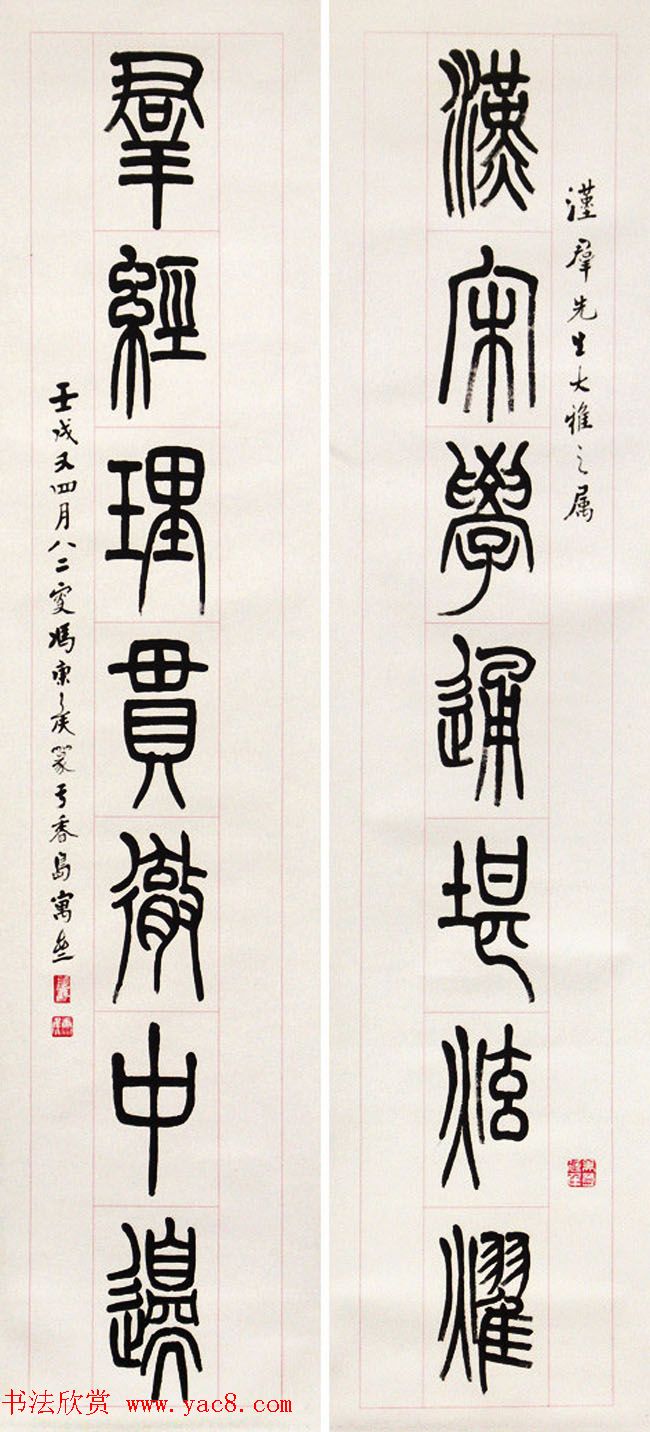 漢宋學通堪炫燿
漢羣先生大雅之属
羣經理貫徹中邊
壬戌又四月八二叟馮康矦篆于香島寓盦
书法欣赏 www.yac8.com